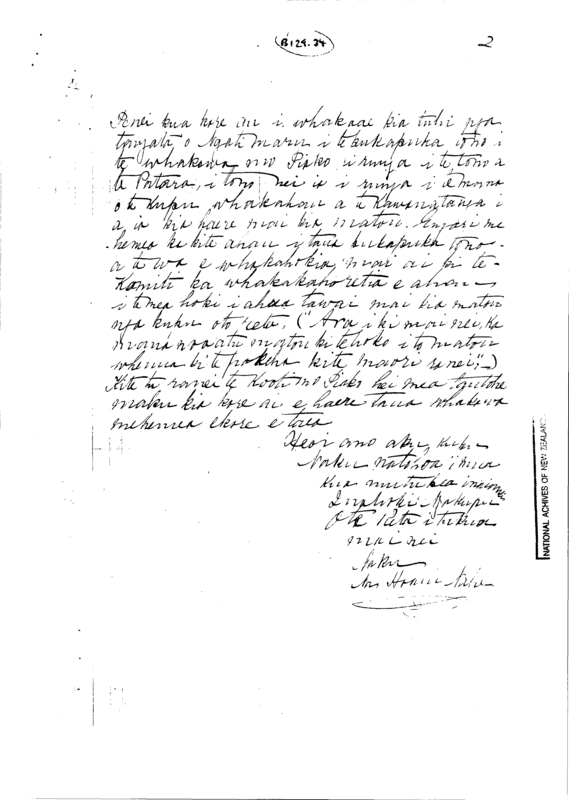 B129.34
2
Penei kua kore au i whakaae kia tuhi nga
tangata o Ngati maru i te pukapuka tono i
te whakawa mo Piako i runga i te tono a
te Putara, i tono nei ia i runga i te mana
o te kupu whakahau a te Kawanatanga i
a ia kia haere mai kia matou. Engari me
hemea ki kite anau i taua pukapuka tono
a te wa e whakahokia mai ai ki te
Komiti ka whakakahoretia e ahau
i te mea hoki i ahua tawai mai kia matou
nga kupu o to reta, (Ara i ki mai nei, Ka
mana noa atu matou ki te hoko i to matou
whenua ki te pakeha ki te maori ranei")
Kite tu ranei te Kooti mo Piako hei mea tautohe
maku kia kore ai e haere taua whakawa
mehemea ekore e taea
Heoi ano aku kupu
Naku na to hoa i mua
kua mutu hoki
Inahoki Nga kupu
O te reta i tukua
mai nei
Naku
Na Hoani Nahe
NATIONAL ACHIVES OF NEW ZEALAND